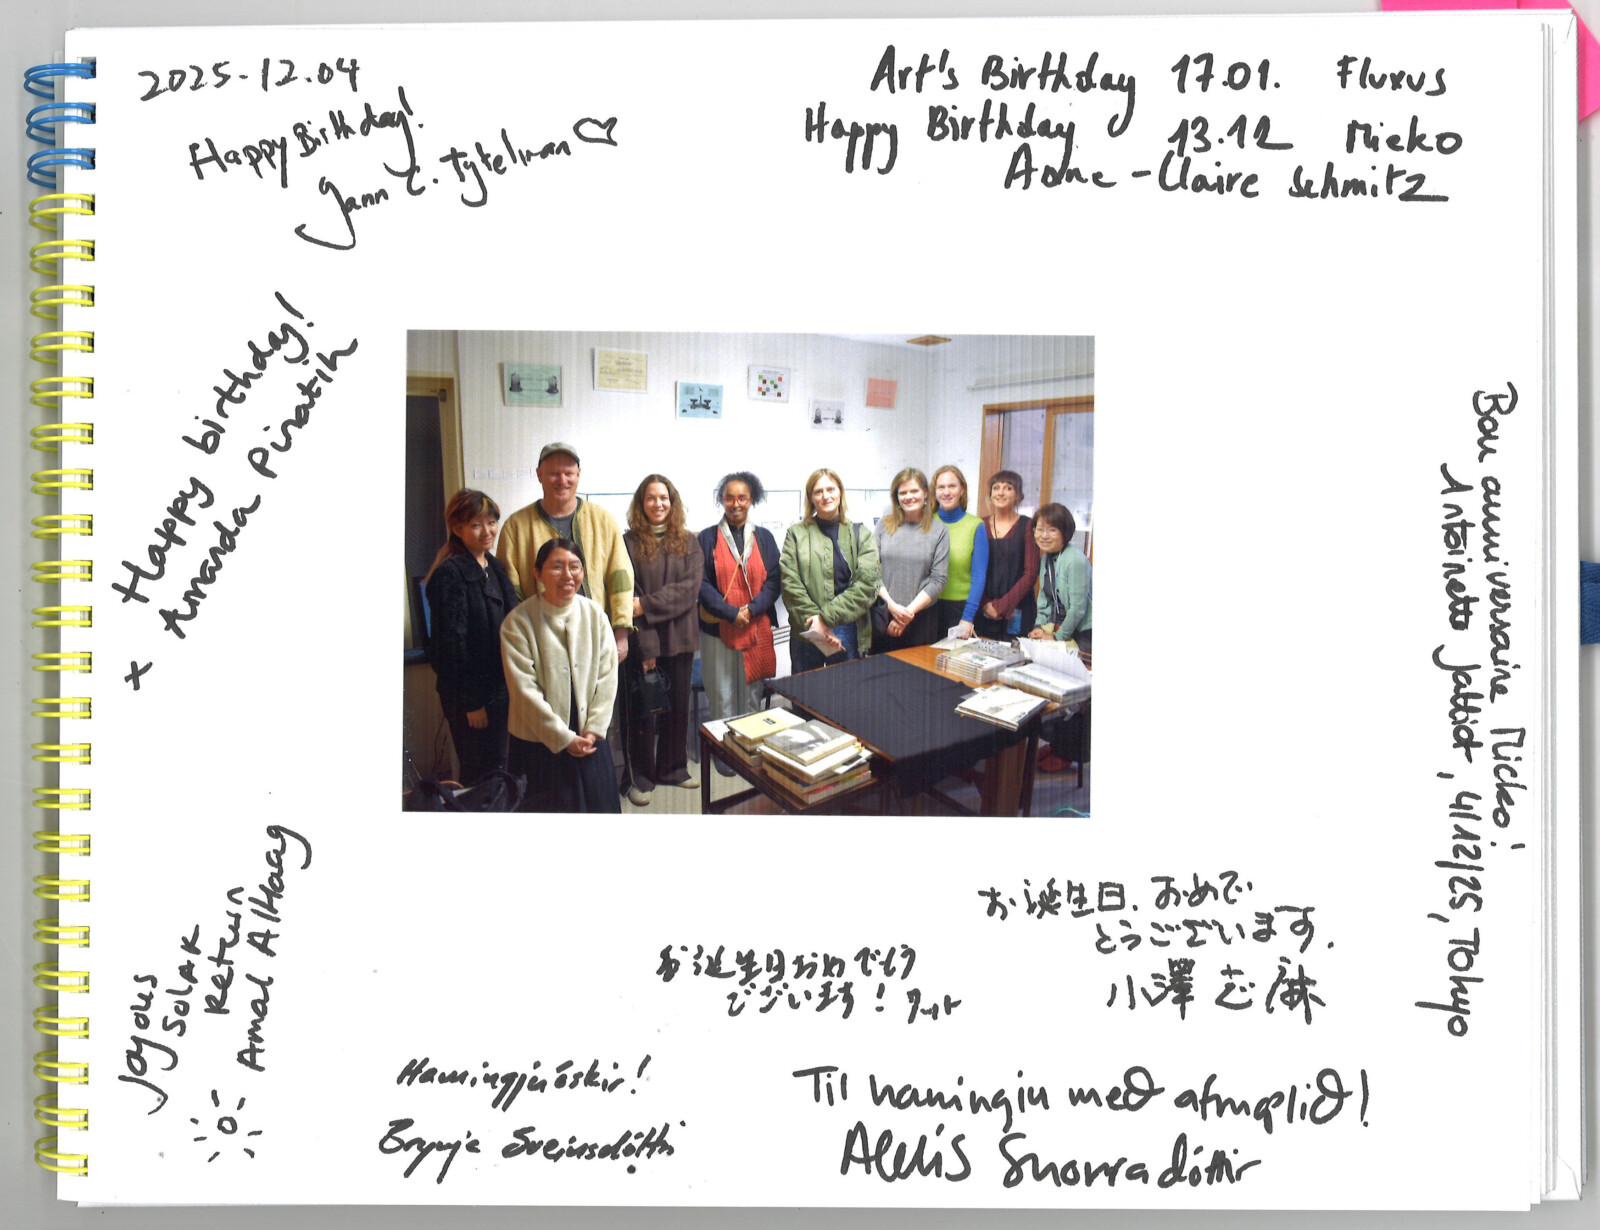 2025-12.04
Happy Birthday!
Jann C. Tytelman
Art's Birthday 17.01. Fluxus
Happy Birthday 13.12 Mieko
Anne-Claire Schmitz
Happy birthday!
Amanda Piratih
x
Bon anniversaire Mieko!
Antoinette Jattiot, 4/12/25, Tokyo
Joyous
Solar
Return
Amal Alhaag
お誕生日、おめで
とうございます。
小澤 志麻
お誕生日おめでとう
ございます!
Hamingjuóskir!
Bryndís Sveinsdóttir
Til hamingju með afmælið!
Aldís Snorradóttir